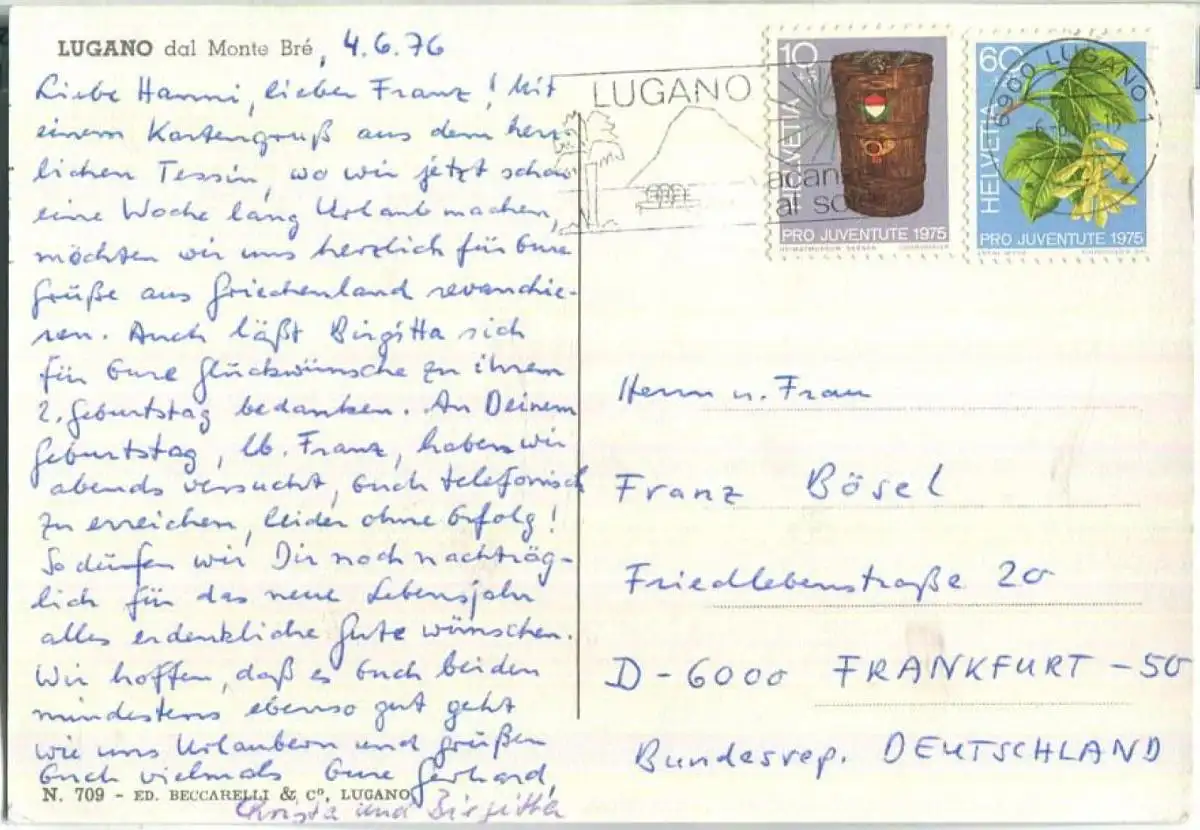 LUGANO dal Monte Bré, 4.6.76
Liebe Hanni, lieber Franz! Mit
einem Kartengruß aus dem herr-
lichen Tessin, wo wir jetzt schon
eine Woche lang Urlaub machen,
möchten wir uns herzlich für Eure
Grüße aus Griechenland revanchie-
ren. Auch läßt Birgitta sich
für Eure Glückwünsche zu ihrem
2. Geburtstag bedanken. An Deinem
Geburtstag, lb. Franz, haben wir
abends versucht, Euch telefonisch
zu erreichen, leider ohne Erfolg!
So dürfen wir Dir noch nachträg-
lich für das neue Lebensjahr
alles erdenkliche Gute wünschen.
Wir hoffen, daß es Euch beiden
mindestens ebenso gut geht
wie uns Urlaubern und grüßen
Euch vielmals Eure Gerhard,
Christa und Birgitta
N. 709 - ED. BECCARELLI & Cº, LUGANO
LUGANO
vacanze
al sole
10
HELVETIA
PRO JUVENTUTE 1975
60
HELVETIA
PRO JUVENTUTE 1975
6900 LUGANO 1
Herrn u. Frau
Franz Bösel
Friedlebenstraße 20
D-6000 FRANKFURT-50
Bundesrep. DEUTSCHLAND